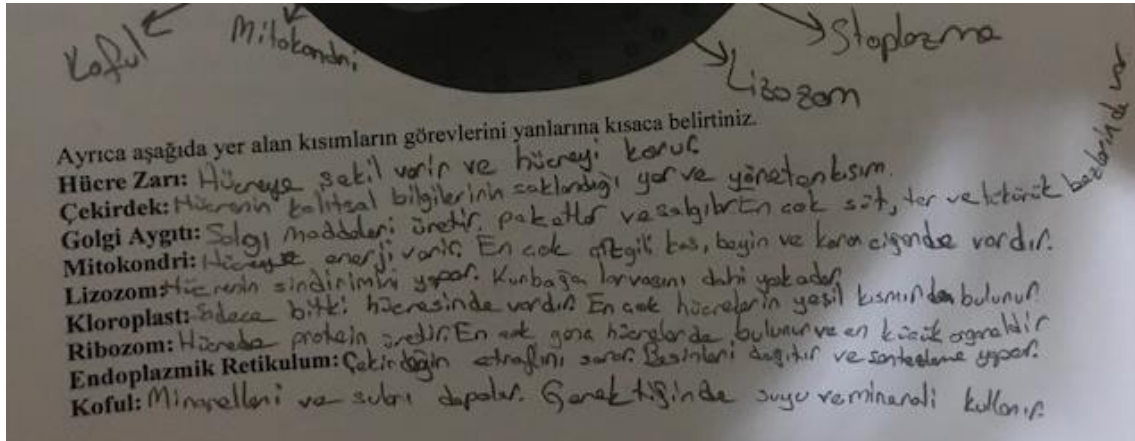 Koful
Mitokondri
Stoplazma
Lizozom
Ayrıca aşağıda yer alan kısımların görevlerini yanlarına kısaca belirtiniz.
Hücre Zarı: Hücreye şekil verir ve hücreyi korur.
Çekirdek: Hücrenin kalıtsal bilgilerinin saklandığı yer ve yöneten kısım.
Golgi Aygıtı: Salgı maddeleri üretir, paketler ve salgılar. En çok süt, ter ve tükürük bezlerinde var
Mitokondri: Hücreye enerji verir. En çok çizgili kas, beyin ve karaciğerde vardır.
Lizozom: Hücrenin sindirimini yapar. Kurbağa larvasını dahi yok eder.
Kloroplast: Sadece bitki hücresinde vardır. En çok hücrelerin yeşil kısmında bulunur.
Ribozom: Hücrede protein üretir. En çok hücrelerde bulunur ve en küçük organeldir
Endoplazmik Retikulum: Çekirdeğin etrafını sarar. Besinleri dağıtır ve yapar.
Koful: Mineralleri ve suları depolar. Gerektiğinde suyu ve minerali kullanır.